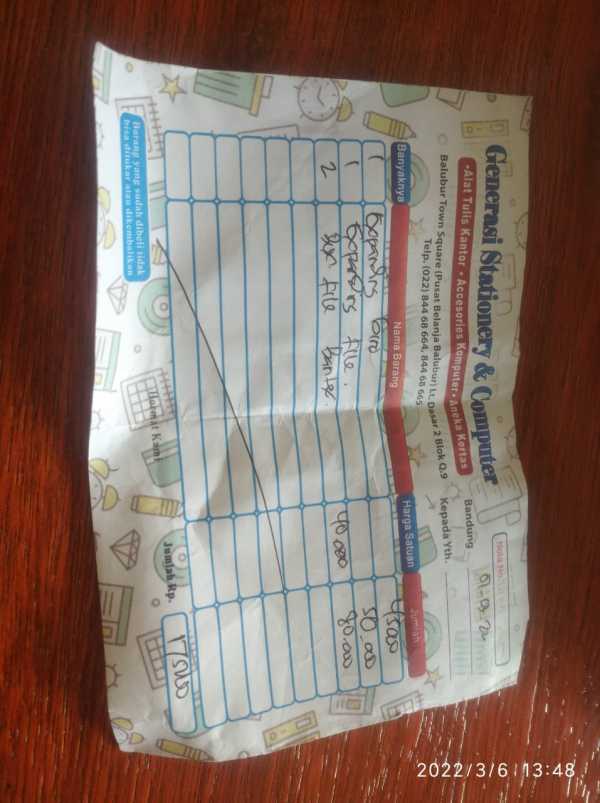 Generasi Stationery & Computer
•Alat Tulis Kantor • Accesories Komputer • Aneka Kertas
Balubur Town Square (Pusat Belanja Balubur) Lt. Dasar 2 Blok Q.9
Telp. (022) 844 68 664, 844 68 665
Nota No.
Bandung
Kepada Yth.
Banyaknya Nama Barang Harga Satuan Jumlah
1 Expanding 45000
1 Expanding file. 50.000
2 Box file bantex. 40.000 80.000
Barang yang sudah dibeli tidak
bisa ditukar atau dikembalikan
Hormat Kami
Jumlah Rp. 175000
2022/3/6 13:48